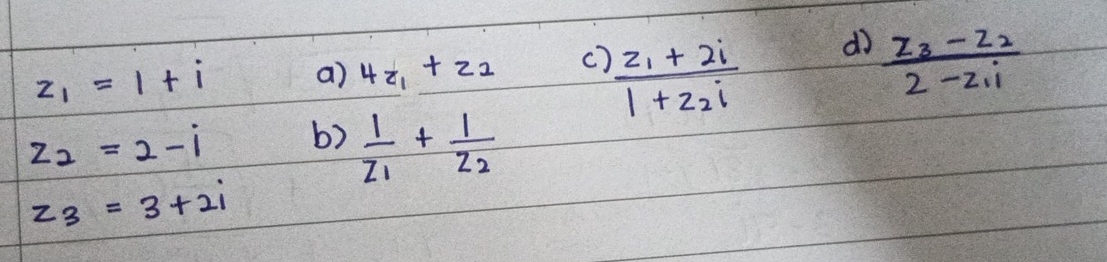 z₁ = 1 + i
z₂ = 2 - i
z₃ = 3 + 2i
a) 4z₁ + z₂
b) 1/z₁ + 1/z₂
c) (z₁ + 2i)/(1 + z₂i)
d) (z₃ - z₂)/(2 - z₁i)